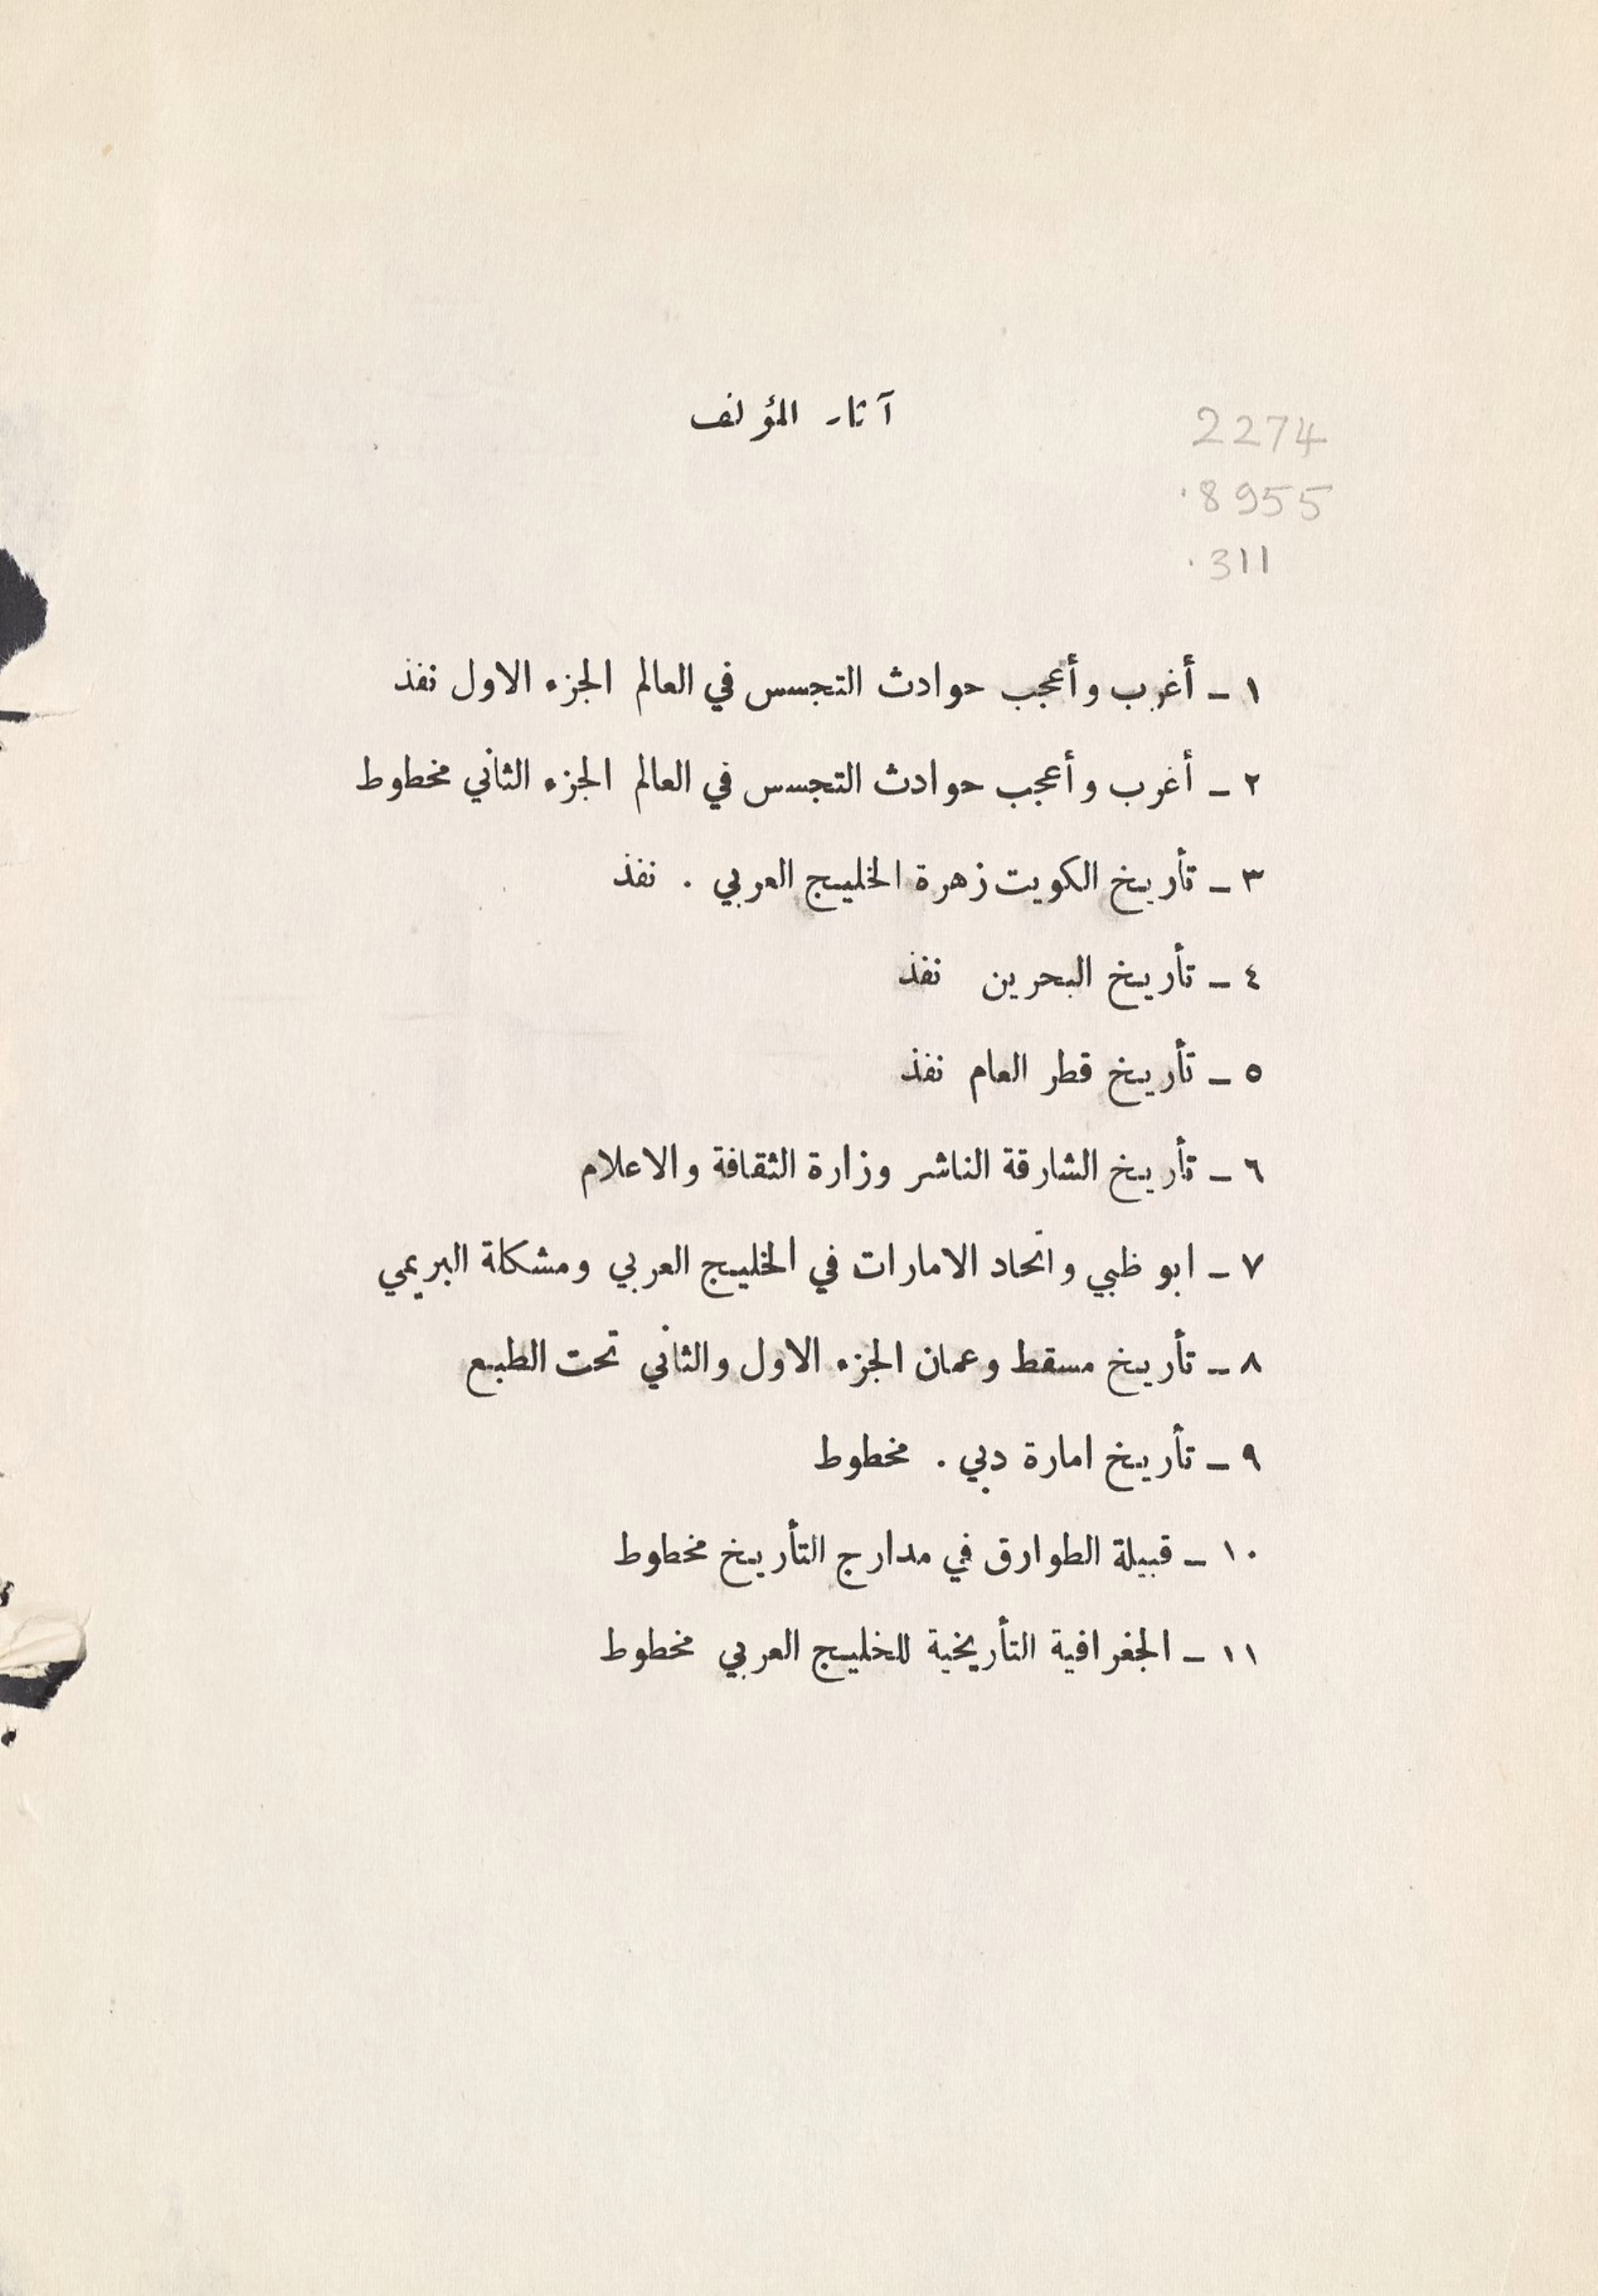 آثار المؤلف
2274
.8955
.311
١ ــ أغرب وأعجب حوادث التجسس في العالم الجزء الاول نفذ
٢ ــ أغرب وأعجب حوادث التجسس في العالم الجزء الثاني مخطوط
٣ ــ تأريخ الكويت زهرة الخليج العربي . نفذ
٤ ــ تأريخ البحرين نفذ
٥ ــ تأريخ قطر العام نفذ
٦ ــ تأريخ الشارقة الناشر وزارة الثقافة والاعلام
٧ ــ ابو ظبي واتحاد الامارات في الخليج العربي ومشكلة البريمي
٨ ــ تأريخ مسقط وعمان الجزء الاول والثاني تحت الطبع
٩ ــ تأريخ امارة دبي . مخطوط
١٠ ــ قبيلة الطوارق في مدارج التأريخ مخطوط
١١ ــ الجغرافية التأريخية للخليج العربي مخطوط